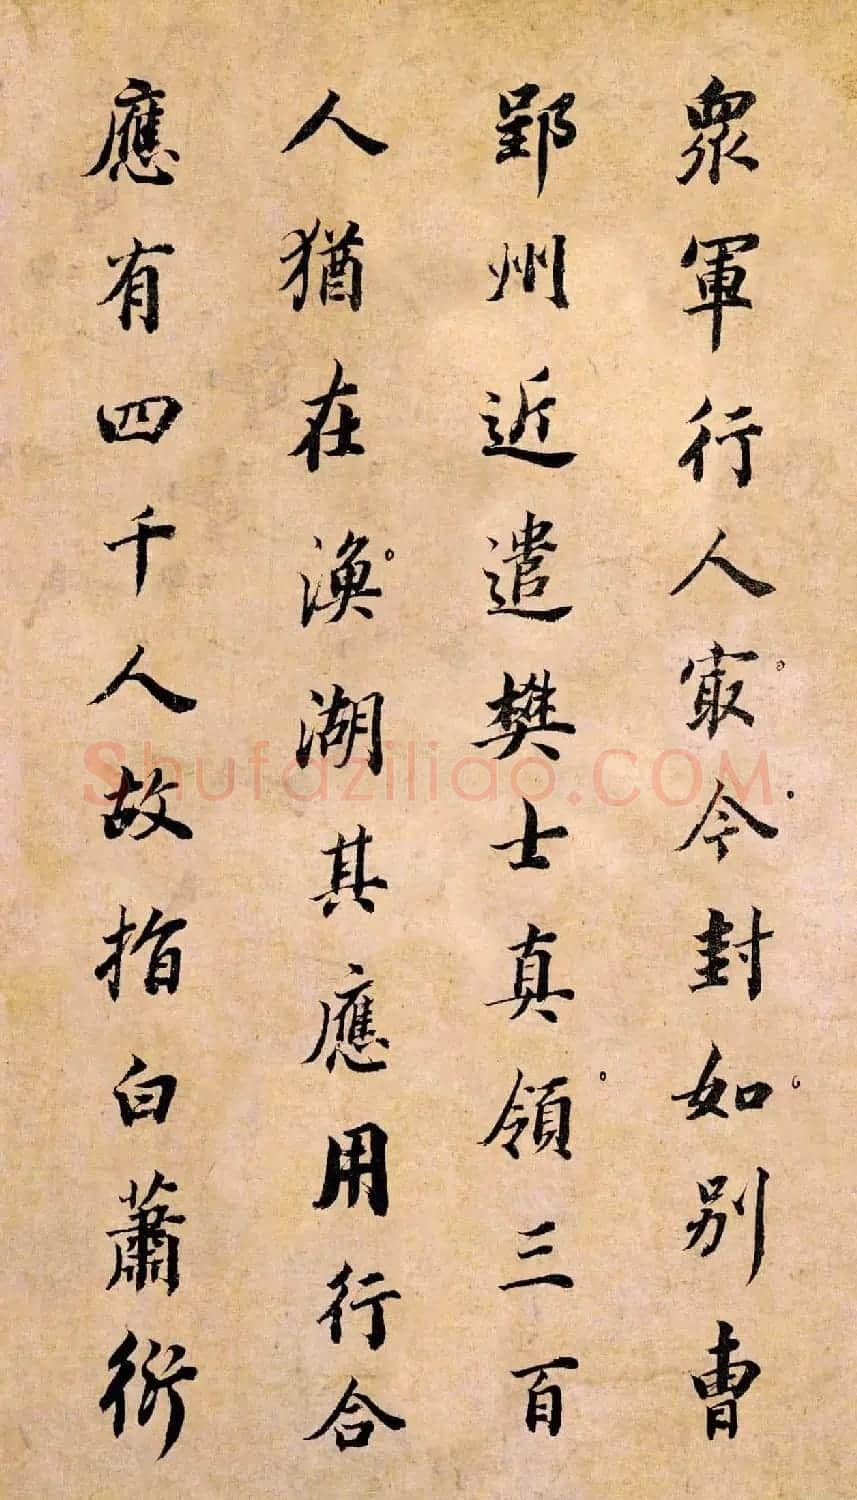 眾軍行人冣今封如別曹
郢州近遣樊士真領三百
人猶在漁湖其應用行合
應有四千人故指白蕭衍
Shufaziliao.COM